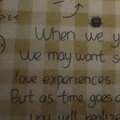 When we y
We may want s
love experiences.
But as time goes o
you will realize